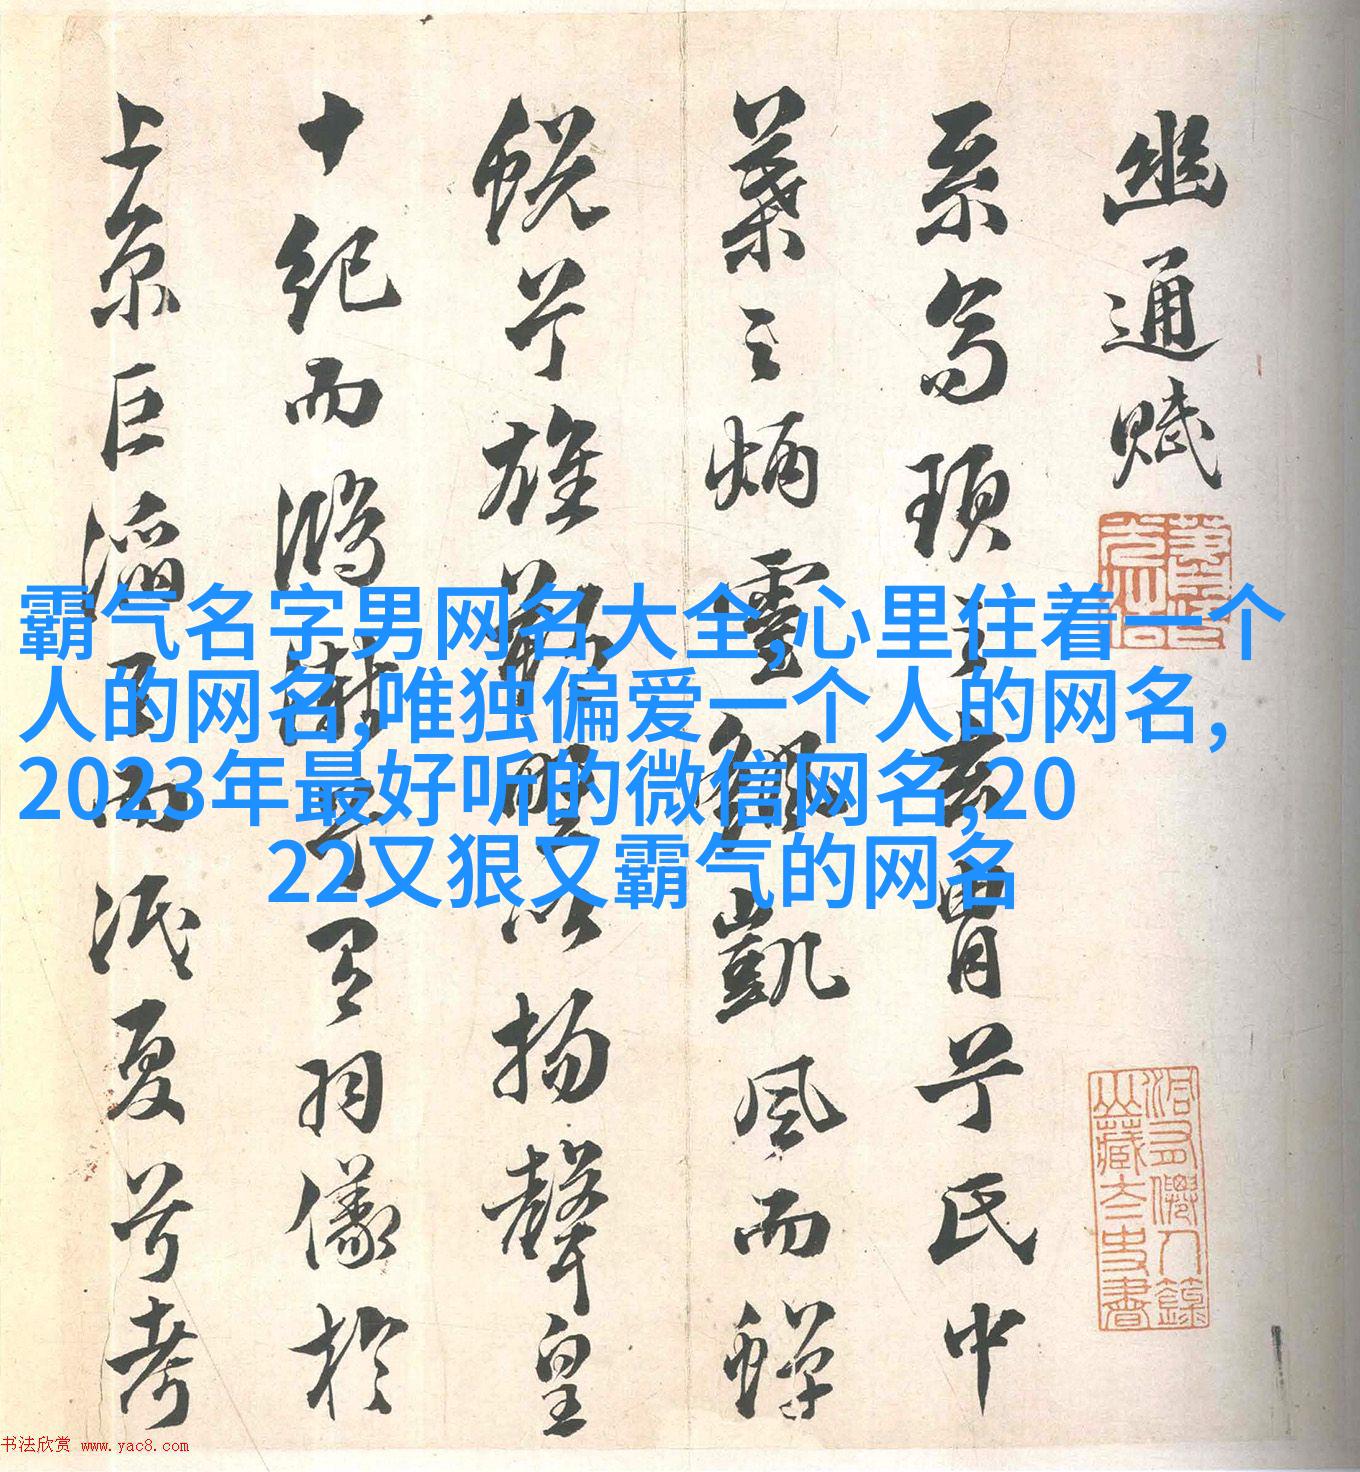 幽通賦
系高頊之玄冑兮氏中
葉之炳靈繇凱風而蟬
蛻兮雄朔野以揚聲皇
十紀而鴻漸兮有羽儀於
上京巨滔天而泯夏兮考
霸气名字男网名大全,心里住着一个
人的网名,唯独偏爱一个人的网名,
2023年最好听的微信网名,20
22又狠又霸气的网名
书法欣赏 www.yac8.com